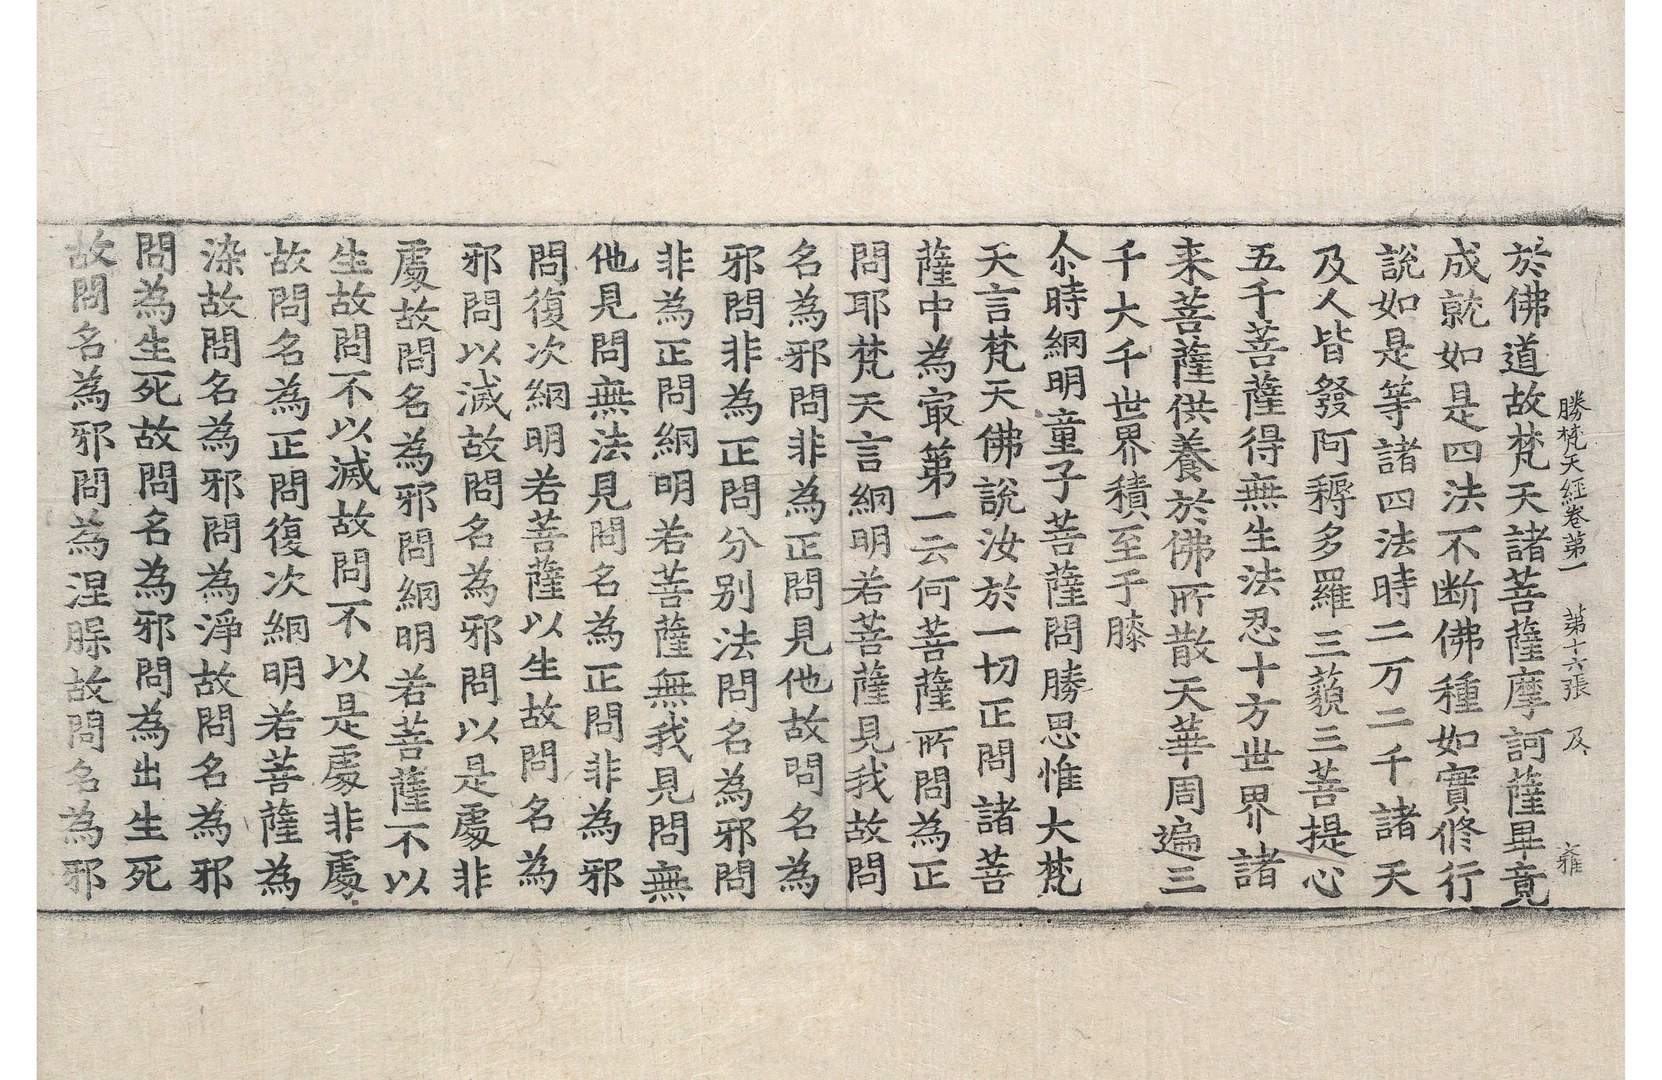 勝梵天經卷第一　第十六張　及　雍
於佛道故梵天諸菩薩摩訶薩畢竟
成就如是四法不断佛種如實修行
說如是等諸四法時二万二千諸天
及人皆發阿耨多羅三藐三菩提心
五千菩薩得無生法忍十方世界諸
来菩薩供養於佛所散天華周遍三
千大千世界積至于膝
尒時網明童子菩薩問勝思惟大梵
天言梵天佛說汝於一切正問諸菩
薩中為冣第一云何菩薩所問為正
問耶梵天言網明若菩薩見我故問
名為邪問非為正問見他故問名為
邪問非為正問分別法問名為邪問
非為正問網明若菩薩無我見問無
他見問無法見問名為正問非為邪
問復次網明若菩薩以生故問名為
邪問以滅故問名為邪問以是處非
處故問名為邪問網明若菩薩不以
生故問不以滅故問不以是處非處
故問名為正問復次網明若菩薩為
染故問名為邪問為淨故問名為邪
問為生死故問名為邪問為出生死
故問名為邪問為涅䐉故問名為邪